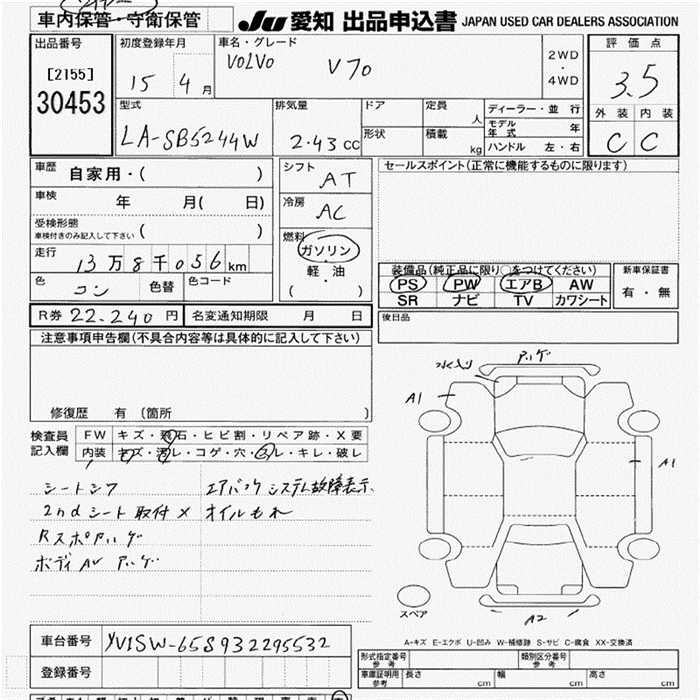 車内保管・守衛保管
JU 愛知 出品申込書 JAPAN USED CAR DEALERS ASSOCIATION
出品番号
[2155]
30453
初度登録年月
15 4月
車名・グレード
VOLVO V70
2WD
・
4WD
評価点
3.5
外装 内装
C C
型式
LA-SB5244W
排気量
2.43cc
ドア
形状
定員
人
積載
kg
ディーラー・並行
モデル年式 年
ハンドル 左・右
車歴
自家用・( )
車検
年 月( 日)
受検形態
車検付きのみ記入して下さい ( )
走行
13万8千056km
色
コン
色替
色コード
シフト
AT
冷房
AC
燃料
ガソリン
・
軽油
( )
セールスポイント(正常に機能するものに限ります)
装備品(純正品に限り○をつけてください)
PS PW エアB AW
SR ナビ TV カワシート
新車保証書
有・無
R券 22.240円
名変通知期限 月 日
後日品
注意事項申告欄(不具合内容等は具体的に記入して下さい)
修復歴 有 (箇所 )
検査員記入欄
FW キズ・飛石・ヒビ割・リペア跡・X要
内装 キズ・汚レ・コゲ・穴・スレ・キレ・破レ
シートシワ
エアバックシステム故障表示
2ndシート取付×
オイルもれ
RスポAハゲ
ボディAU ハゲ
A1
A1
A2
スペア
A-キズ E-エクボ U-凹み W-補修跡 S-サビ C-腐食 XX-交換済
車台番号
YV1SW-65S932295532
登録番号
形式指定番号
参考
類別区分番号
参考
車庫証明用
参考
長さ cm
幅 cm
高さ cm